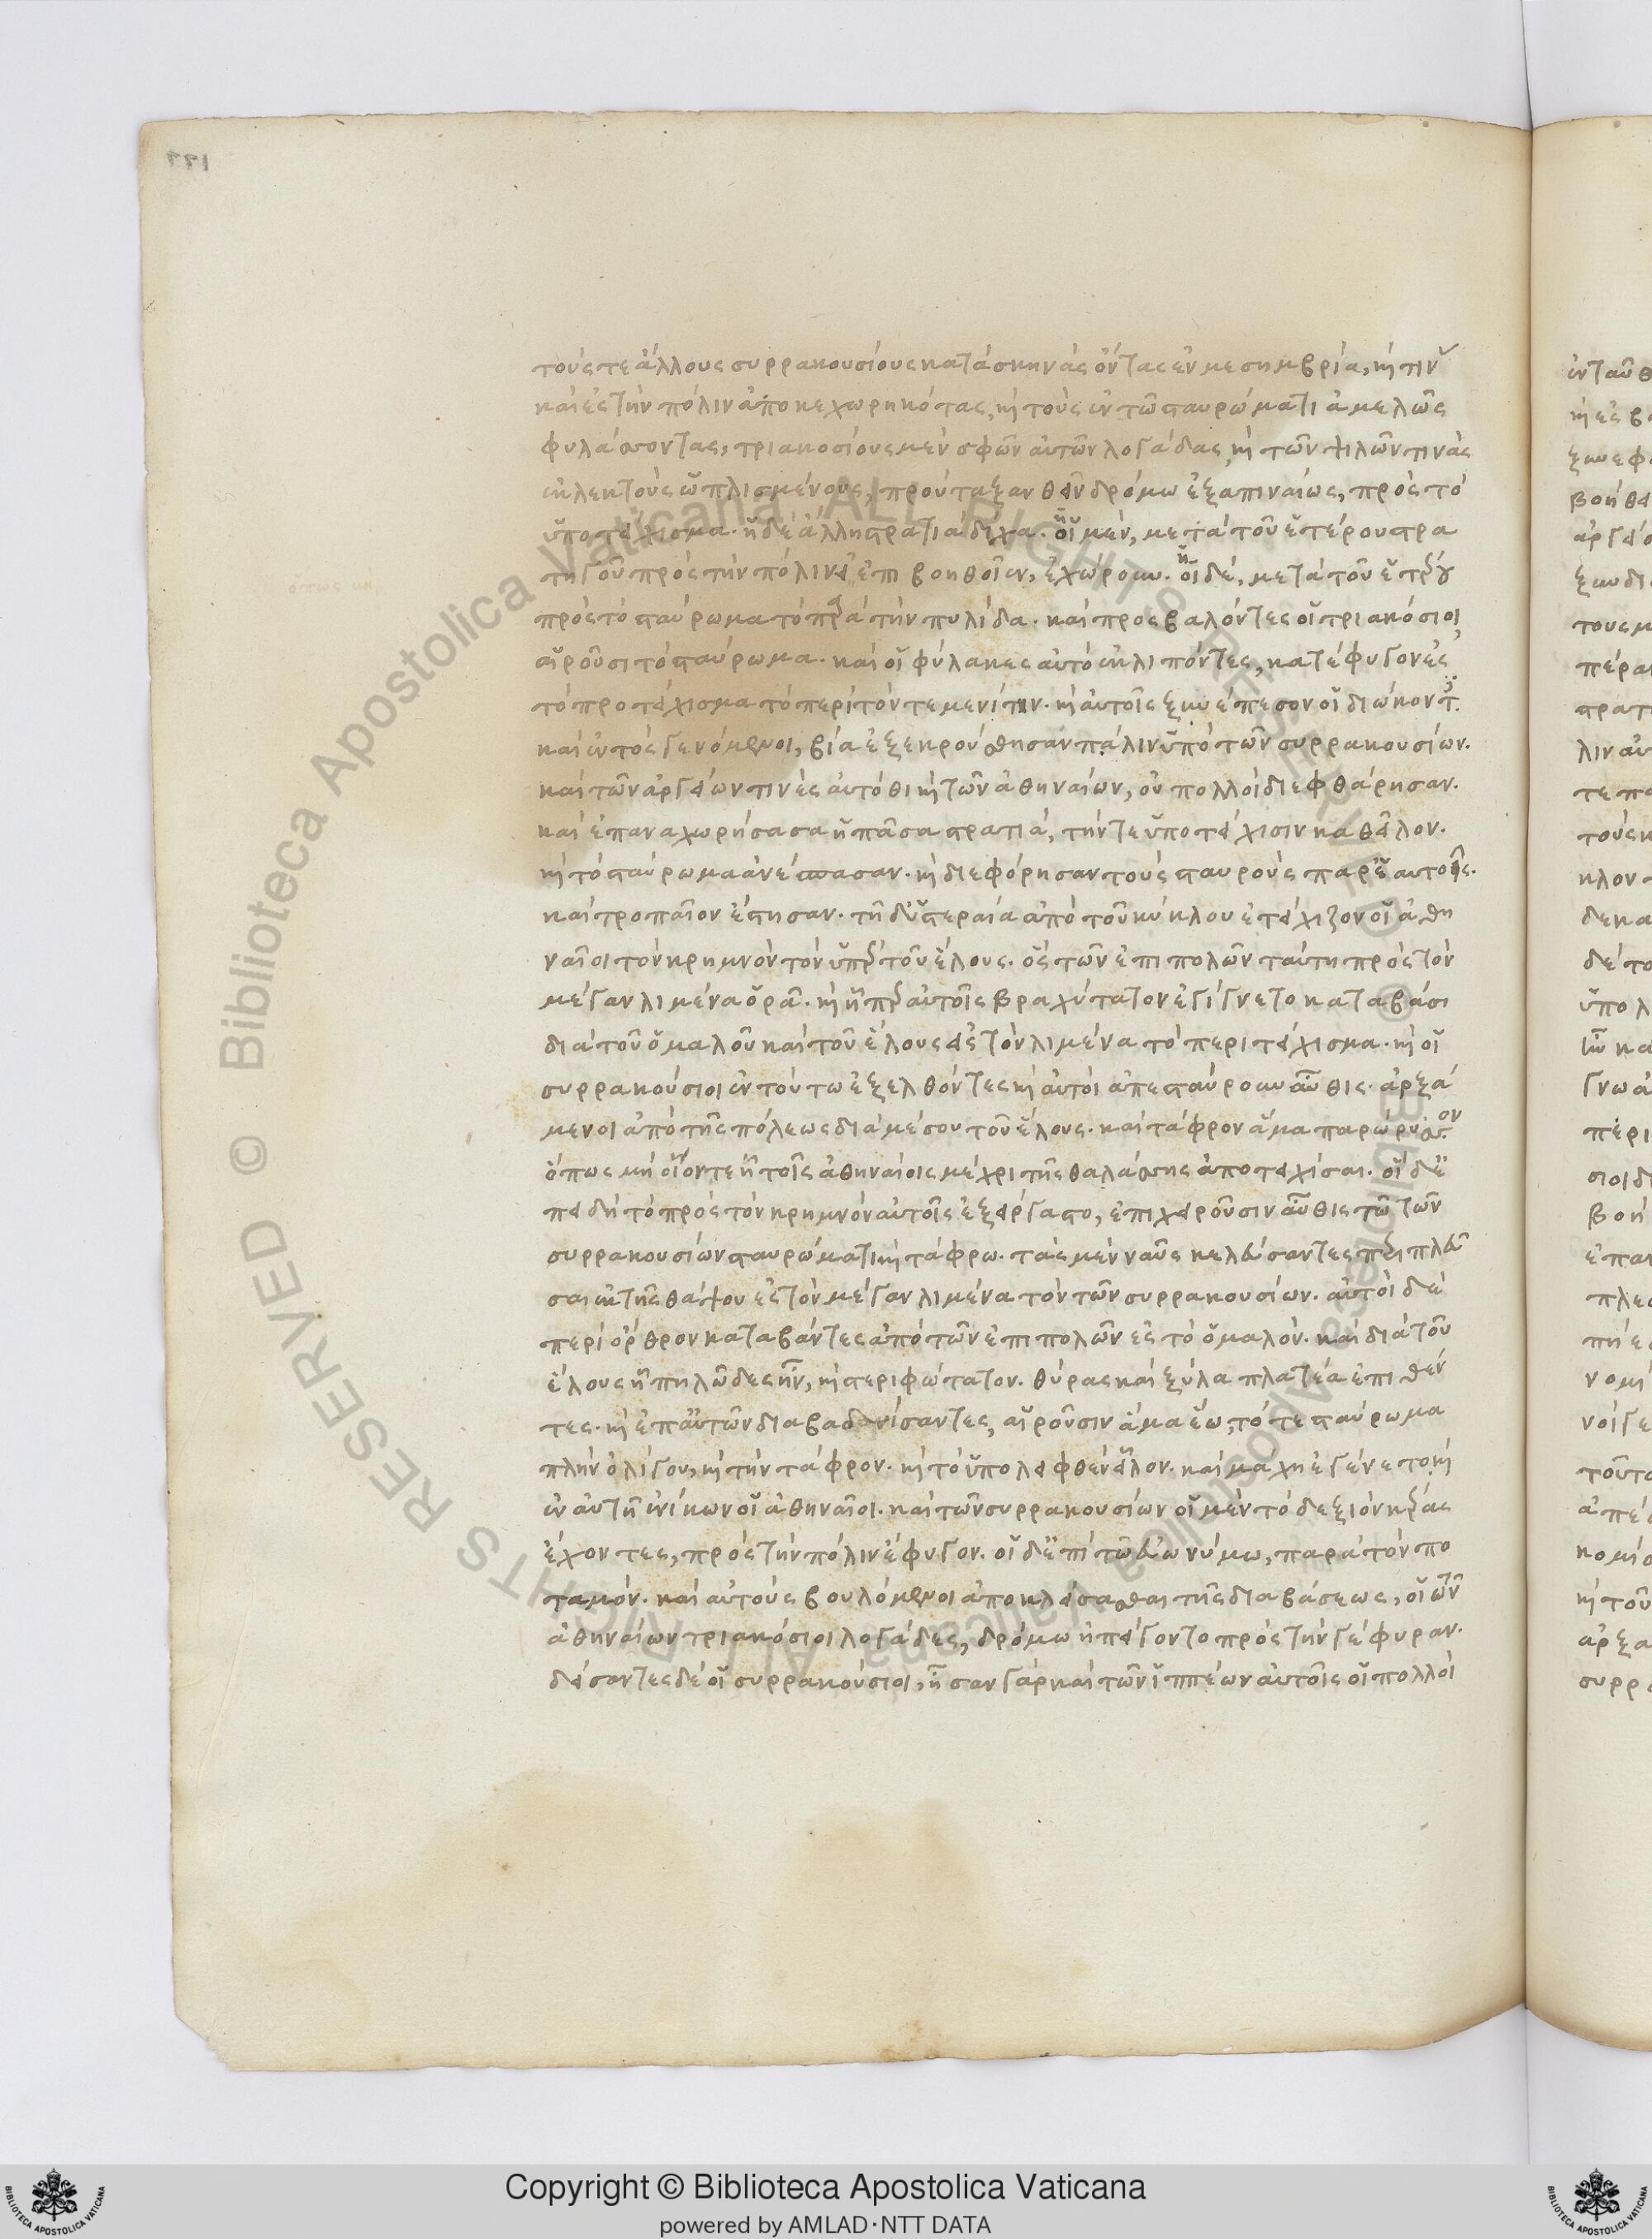 τούς τε ἄλλους συρρακουσίους κατὰ σκηνὰς ὄντας ἐν μεσημβρία, κ τιν
καὶ ἐς τὴν πόλιν ἀποκεχωρηκότας, κ τοὺς ἐν τῶ σταυρώματι ἀμελῶς
φυλάσσοντας, τριακοσίους μὲν σφῶν αὐτῶν λογάδας κ τῶν ψιλῶν τινὰς
ἐκλεκτοὺς ὡπλισμένους, προύταξαν θεῖν δρόμω ἐξαπιναίως, πρὸς τὸ
ὑποτείχισμα· ἡ δὲ ἄλλη στρατιὰ δίχα· οἱ μὲν, μετὰ τοῦ ἑτέρου στρα
τηγοῦ πρὸς τὴν πόλιν εἰ ἐπιβοηθοῖεν, ἐχώρουν· οἱ δὲ, μετὰ τοῦ ἑτέρου
πρὸς τὸ σταύρωμα τὸ παρὰ τὴν πυλίδα· καὶ προσβαλόντες οἱ τριακόσιοι
αἱροῦσι τὸ σταύρωμα· καὶ οἱ φύλακες αὐτὸ ἐκλιπόντες, κατέφυγον ἐς
τὸ προτείχισμα τὸ περὶ τὸν τεμενίτην· κ αὐτοῖς ξυνέπεσον οἱ διώκοντ
καὶ ἐντὸς γενόμενοι, βία ἐξεκρούσθησαν πάλιν ὑπὸ τῶν συρρακουσίων·
καὶ τῶν ἀργείων τινὲς αὐτόθι κ τῶν ἀθηναίων, οὐ πολλοὶ διεφθάρησαν·
καὶ ἐπαναχωρήσασα ἡ πᾶσα στρατιὰ, τήν τε ὑποτείχισιν καθεῖλον·
κ τὸ σταύρωμα ἀνέσπασαν· κ διεφόρησαν τοὺς σταυροὺς παρ' ἑαυτοὺς·
καὶ τροπαῖον ἔστησαν· τῆ δ' ὑστεραία ἀπὸ τοῦ κύκλου ἐτείχιζον οἱ ἀθη
ναῖοι τὸν κρημνὸν τὸν ὑπὲρ τοῦ ἕλους· ὃς τῶν ἐπιπολῶν ταύτη πρὸς τὸν
μέγαν λιμένα ὁρᾶ· κ ἧπερ αὐτοῖς βραχύτατον ἐγίγνετο καταβάσι
διὰ τοῦ ὁμαλοῦ καὶ τοῦ ἕλους εἰς τὸν λιμένα τὸ περιτείχισμα· κ οἱ
συρρακούσιοι ἐν τούτω ἐξελθόντες κ αὐτοὶ ἀπεσταύρουν αὖθις· ἀρξά
μενοι ἀπὸ τῆς πόλεως διὰ μέσου τοῦ ἕλους· καὶ τάφρον ἅμα παρώρυσσον
ὅπως μὴ οἷόν τε ἦ τοῖς ἀθηναίοις μέχρι τῆς θαλάσσης ἀποτειχίσαι· οἱ δ' ἐ
πειδὴ τὸ πρὸς τὸν κρημνὸν αὐτοῖς ἐξείργαστο, ἐπιχειροῦσιν αὖθις τῶ τῶν
συρρακουσίων σταυρώματι κ τάφρω· τὰς μὲν ναῦς κελεύσαντες περιπλεῦ
σαι ἐκ τῆς θάψου ἐς τὸν μέγαν λιμένα τὸν τῶν συρρακουσίων· αὐτοὶ δὲ
περὶ ὄρθρον καταβάντες ἀπὸ τῶν ἐπιπολῶν ἐς τὸ ὁμαλόν· καὶ διὰ τοῦ
ἕλους ἧ πηλῶδες ἦν, κ στεριφώτατον· θύρας καὶ ξύλα πλατέα ἐπιθέν
τες· κ ἐπ' αὐτῶν διαβαδίσαντες, αἱροῦσιν ἅμα ἕω, τό τε σταύρωμα
πλὴν ὀλίγου, κ τὴν τάφρον· κ τὸ ὑπολειφθὲν εἷλον· καὶ μάχη ἐγένετο κ
ἐν αὐτῆ ἐνίκων οἱ ἀθηναῖοι· καὶ τῶν συρρακουσίων οἱ μὲν τὸ δεξιὸν κέρας
ἔχοντες, πρὸς τὴν πόλιν ἔφυγον· οἱ δ' ἐπὶ τῶ εὐωνύμω, παρὰ τὸν πο
ταμόν· καὶ αὐτοὺς βουλόμενοι ἀποκλείσασθαι τῆς διαβάσεως, οἱ τῶν
ἀθηναίων τριακόσιοι λογάδες, δρόμω ἠπείγοντο πρὸς τὴν γέφυραν·
δείσαντες δὲ οἱ συρρακούσιοι, ἦσαν γὰρ καὶ τῶν ἱππέων αὐτοῖς οἱ πολλοὶ
Copyright © Biblioteca Apostolica Vaticana
powered by AMLAD·NTT DATA